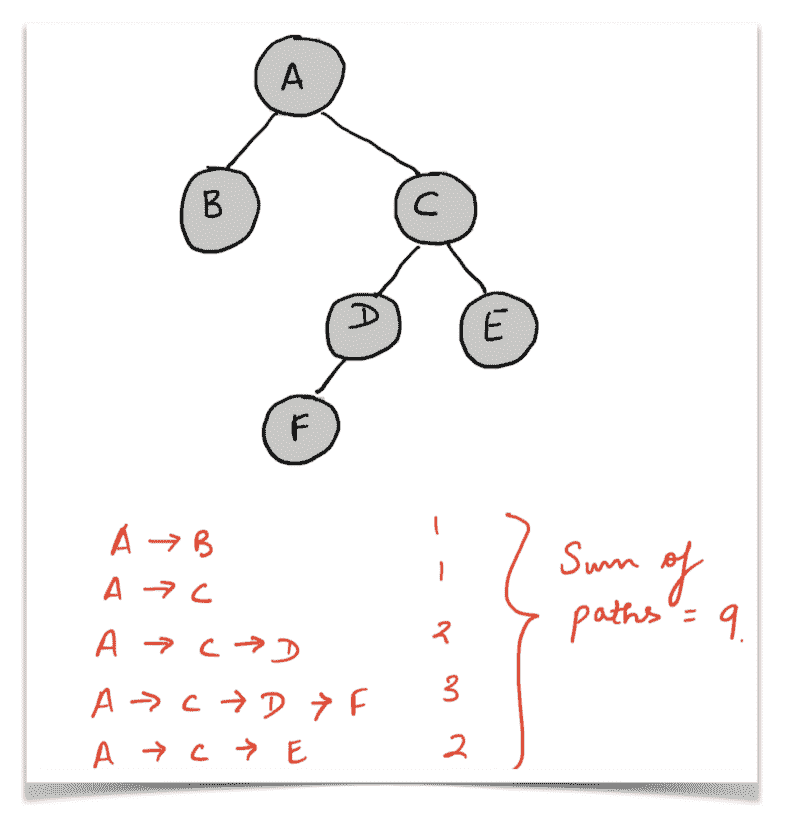 A
B
C
D
E
F
A → B 1
A → C 1
A → C → D 2
A → C → D → F 3
A → C → E 2
Sum of
paths = 9.